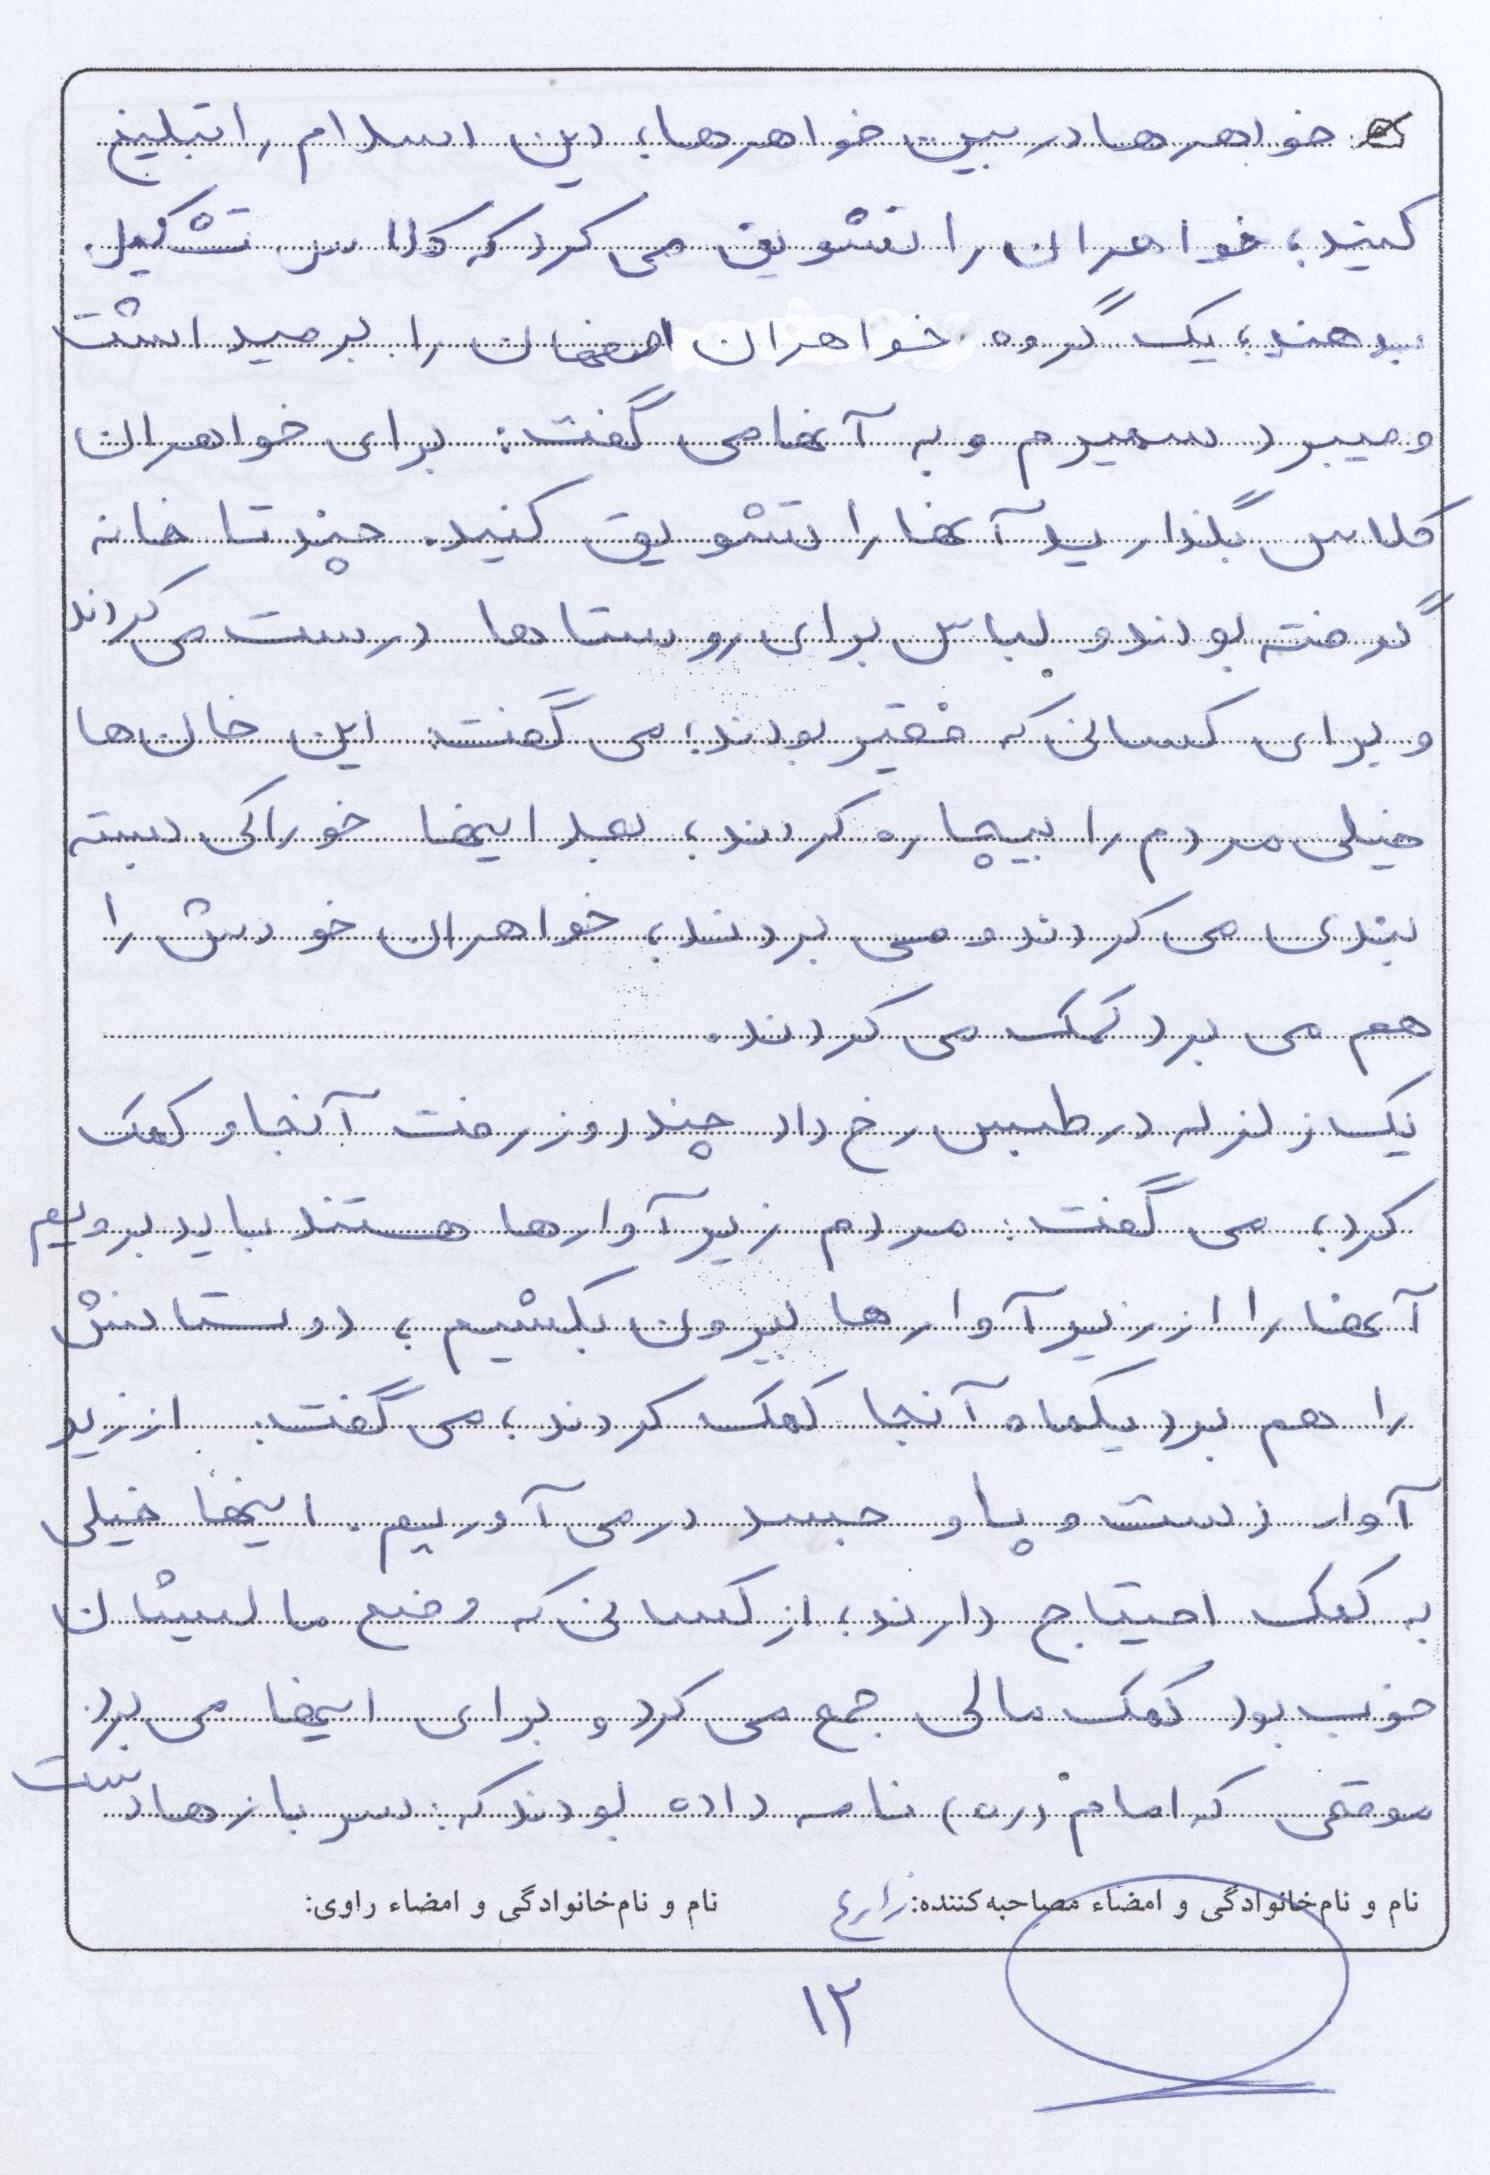 خواهرها در بین خواهرها، دین اسلام را تبلیغ
کنید، خواهران را تشویق می کرد که کلاس تشکیل
بدهند، یک گروه خواهران اصفهان را برمیداشت
و میبرد سمیرم و به آنها می گفت: برای خواهران
کلاس بگذارید آنها را تشویق کنید. چند تا خانه
گرفته بودند و لباس برای روستاها درست می کردند
و برای کسانی که فقیر بودند، می گفت: این خان ها
خیلی مردم را بیچاره کردند، بعد اینها خوراکی بسته
بندی می کردند و می بردند، خواهران خودش را
هم می برد کمک می کردند.
یک زلزله در طبس رخ داد چند روز رفت آنجا و کمک
کرد، می گفت: مردم زیر آوارها هستند باید برویم
آنها را از زیر آوارها بیرون بکشیم، دوستانش
را هم برد یکماه آنجا کمک کردند، می گفت: از زیر
آوار دست و پا و جسد درمی آوریم. اینها خیلی
به کمک احتیاج دارند، از کسانی که وضع مالیشان
خوب بود کمک مالی جمع می کرد و برای اینها می برد.
موقعی که امام (ره) نامه داده بودند که: سربازها دست
نام و نام‌خانوادگی و امضاء مصاحبه‌کننده: زارع نام و نام‌خانوادگی و امضاء راوی:
۱۲